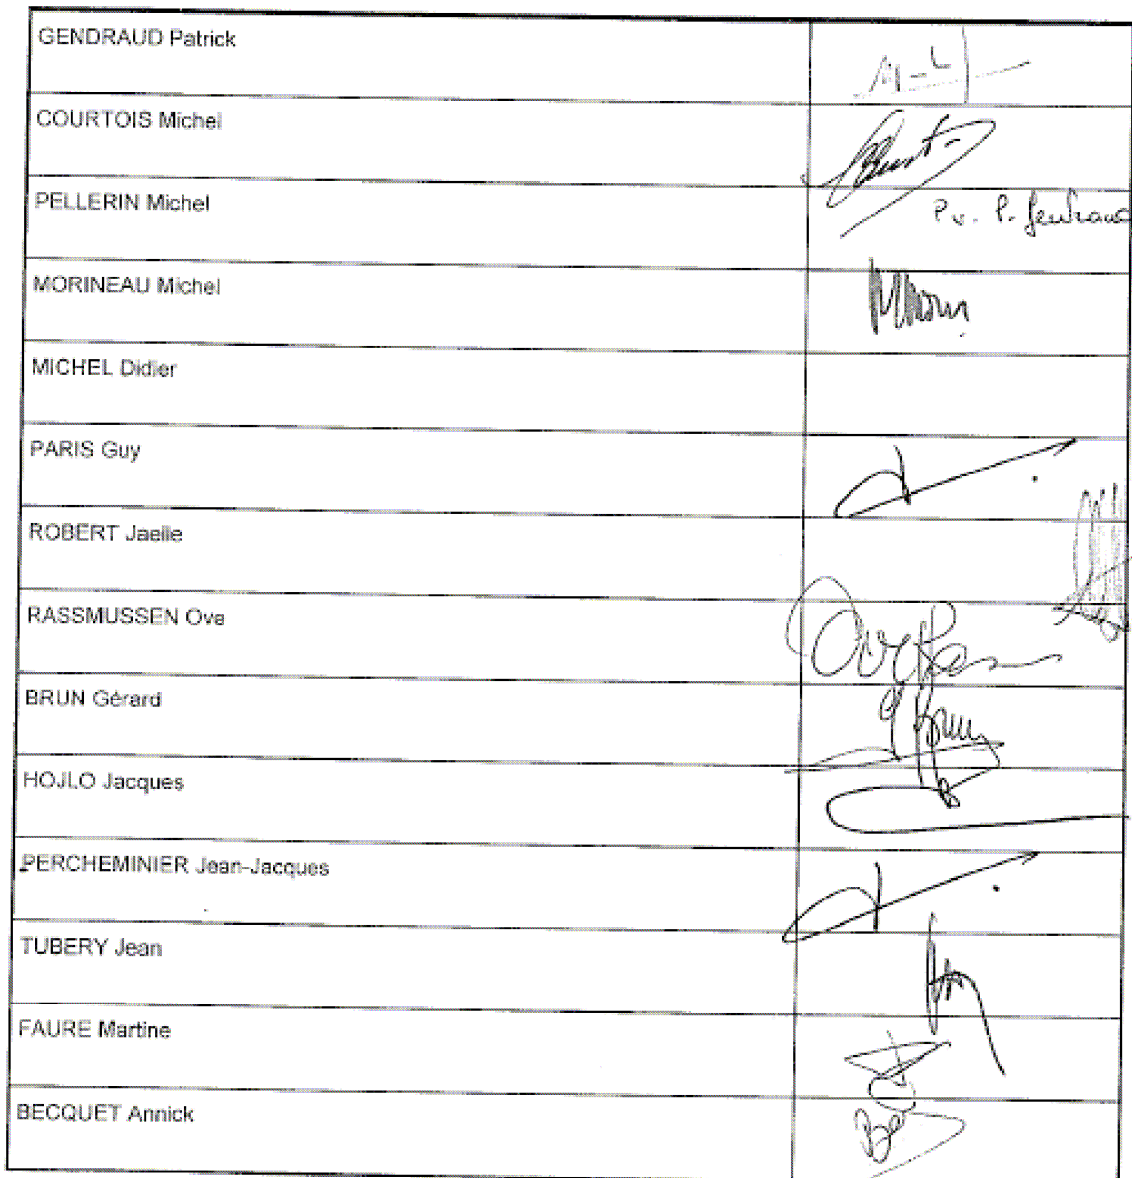 GENDRAUD Patrick
COURTOIS Michel
PELLERIN Michel
P.v. P. Gendraud
MORINEAU Michel
MICHEL Didier
PARIS Guy
ROBERT Jaelle
RASSMUSSEN Ove
BRUN Gérard
HOJLO Jacques
PERCHEMINIER Jean-Jacques
TUBERY Jean
FAURE Martine
BECQUET Annick